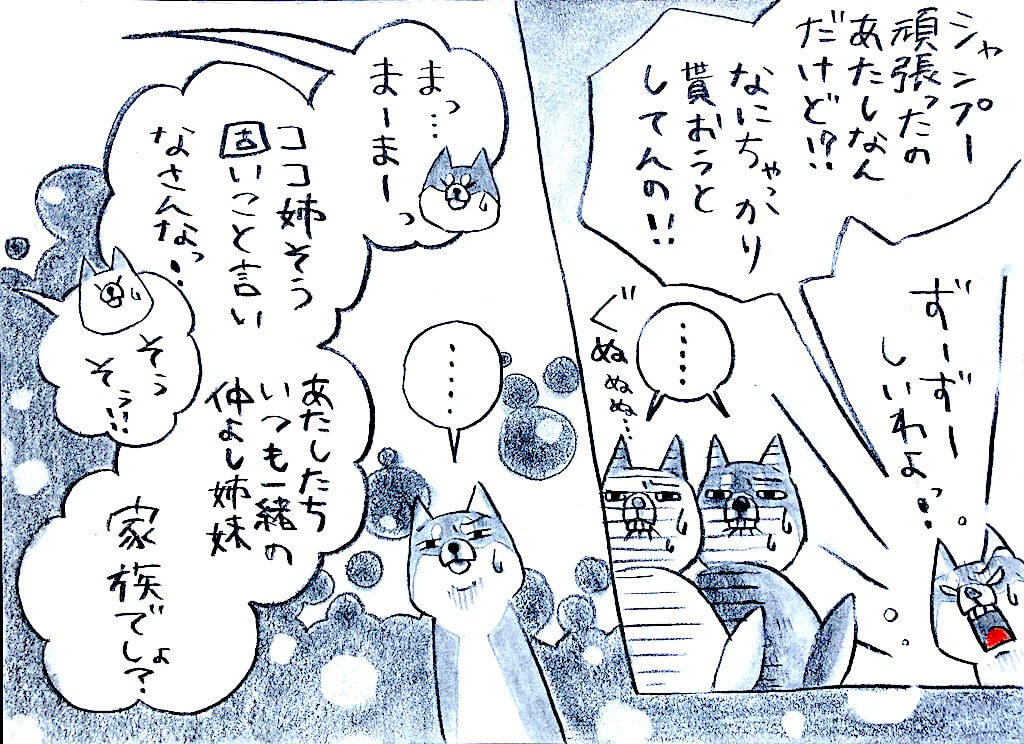 シャンプー
頑張ったの
あたしなん
だけど!?
なにちゃっかり
貰おうと
してんの!!
ずーずー
しいわよっ!
……
ぐぬぬぬぬ…
……
まっ…
まーまーっ
ココ姉そう
固いこと言い
なさんなっ!
そう
そう!!
あたしたち
いつも一緒の
仲よし姉妹
家族でしょ?